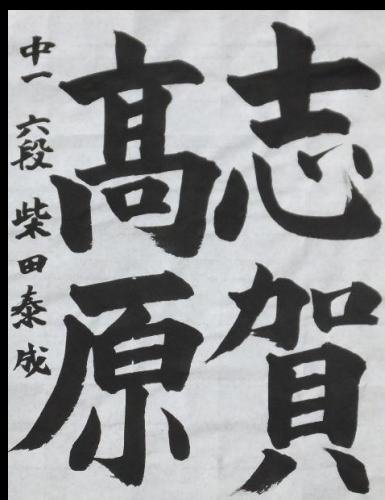 志賀
髙原
中一 六段 柴田泰成